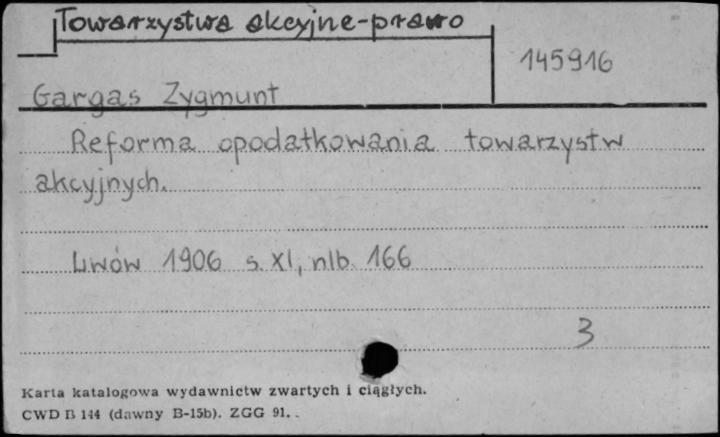 Towarzystwa akcyjne-prawo
145916
Gargas Zygmunt
Reforma opodatkowania towarzystw
akcyjnych.
Lwów 1906 s. XI, nlb. 166
3
Karta katalogowa wydawnictw zwartych i ciągłych.
CWD B 144 (dawny B-15b). ZGG 91.